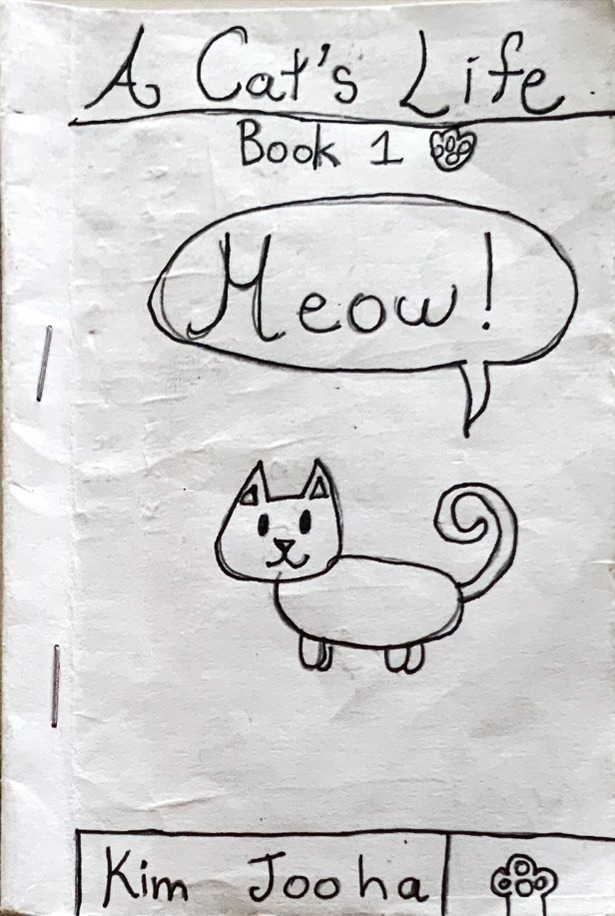 A Cat's Life
Book 1
Meow!
Kim Jooha